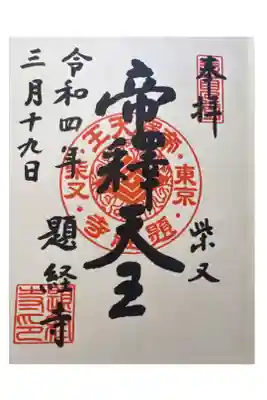 奉拝
柴又
帝釋天王
令和四年
三月十九日
題経寺
東京
柴又